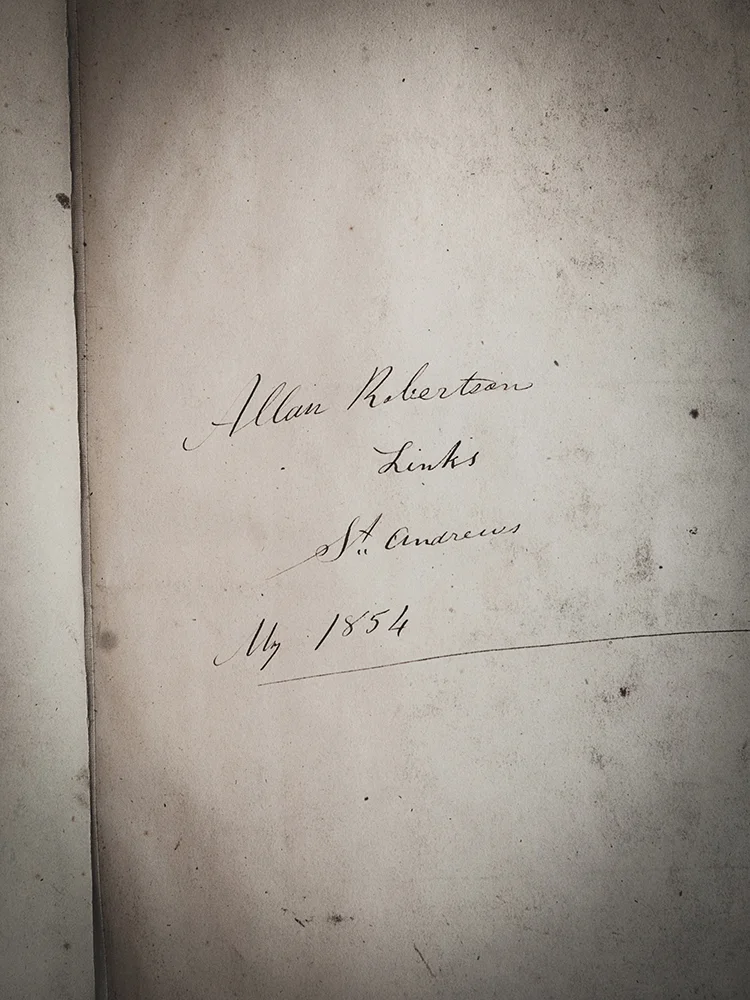 Allan Robertson
Links
St. Andrews
My 1854